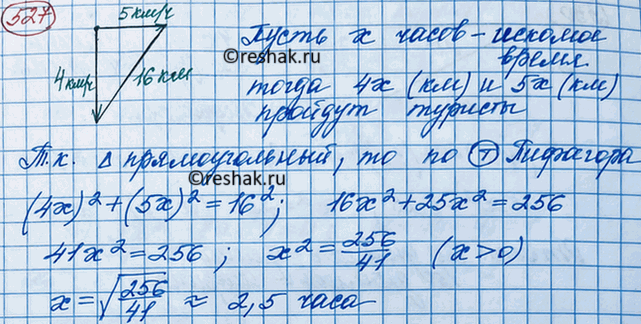 527
5 км/ч
4 км/ч
16 км
Пусть x часов – искомое
время.
©reshak.ru
тогда 4x (км) и 5x (км)
пройдут туристы
Т.к. Δ прямоугольный, то по Ⓣ Пифагора
©reshak.ru
(4x)² + (5x)² = 16²; 16x² + 25x² = 256
41x² = 256; x² = 256/41 (x>0)
©reshak.ru
x = √256/41 ≈ 2,5 часа